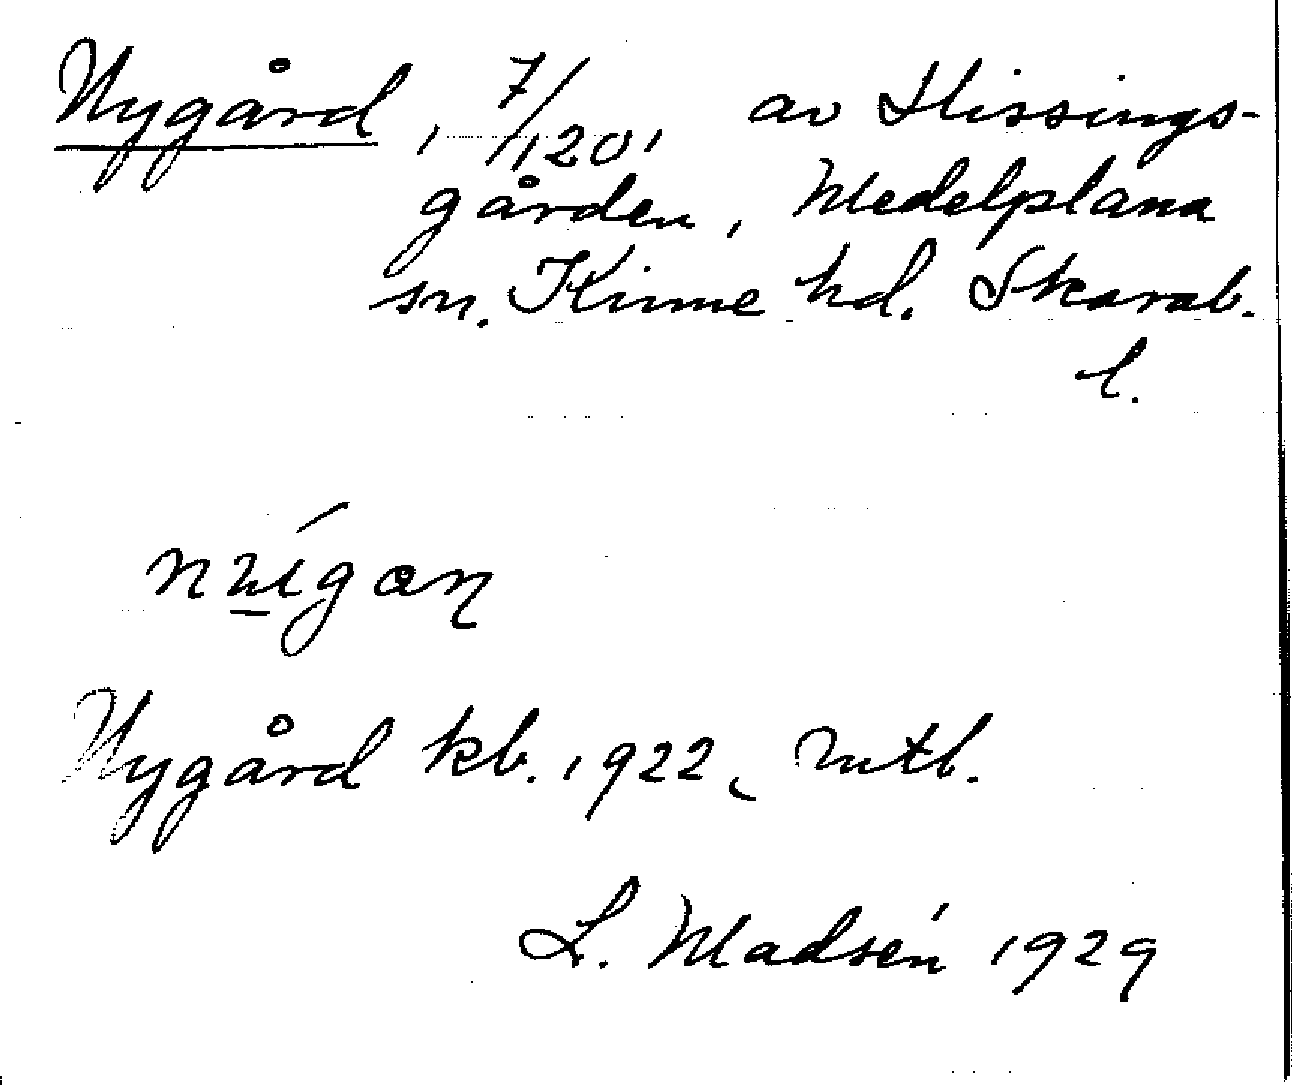 Nygård, 7/120, av Hissings-
gården, Medelplana
sn. Kinne hd. Skarab.
l.
Nygård kb. 1922, mtb.
L. Madsén 1929